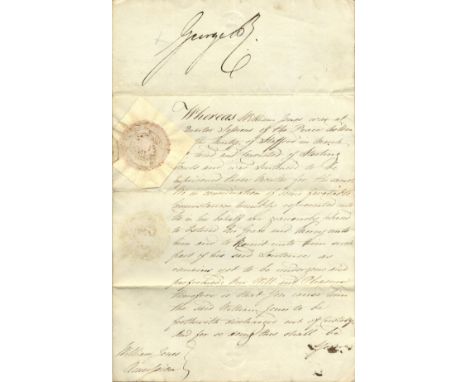 George R.
Whereas William Jones was at
Quarter Sessions of the Peace holden
the County of Stafford in March
tried and Convicted of Stealing
and was Sentenced to be
imprisoned three Months for the same;
We in consideration of some favorable
circumstances humbly represented unto
Us in his behalf are graciously pleased
to Extend Our Grace and Mercy unto
him and to Remit unto him such
part of his said Sentence as
remains yet to be undergone and
performed; Our Will and Pleasure
therefore is that you cause him
the said William Jones to be
forthwith discharged out of Custody
And for so doing this shall be
William Jones
Remission